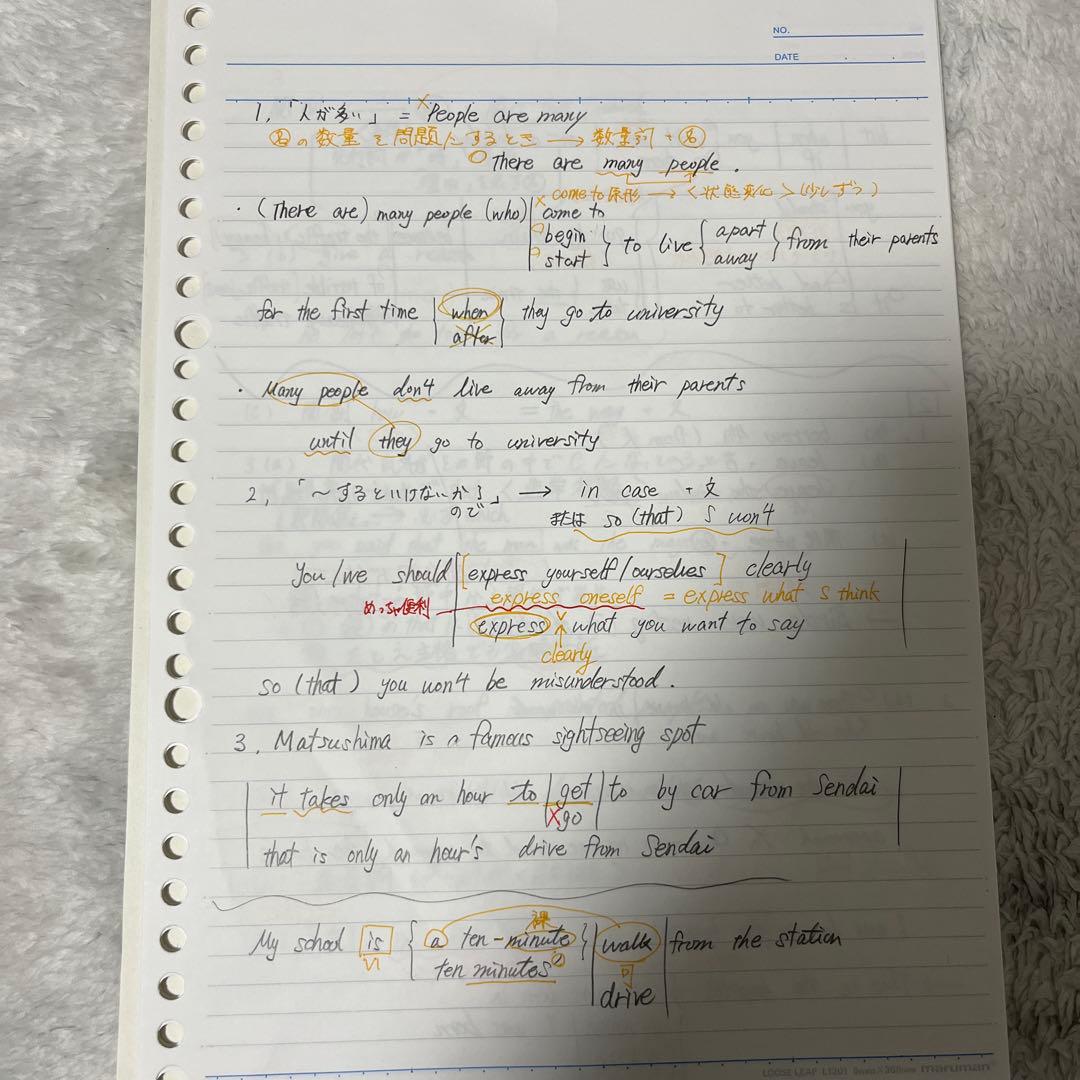 NO.
DATE
1, 「人が多い」 = ×People are many
㊔の数量を問題にするとき → 数量詞 + ㊔
○There are many people.
× come to 原形 → <状態変化> (少しずつ)
・(There are) many people (who) come to
○begin
○start
to live
apart
away
from their parents
for the first time when they go to university
after
・Many people don't live away from their parents
until they go to university
2, 「〜するといけないから」 → in case + 文
ので
または so (that) S won't
You/we should [express yourself/ourselves] clearly
めっちゃ便利 express oneself = express what S think
express what you want to say
clearly
so (that) you won't be misunderstood.
3, Matsushima is a famous sightseeing spot
it takes only an hour to get to by car from Sendai
×go
that is only an hour's drive from Sendai
裸
My school is a ten-minute walk from the station
ten minutes'
可
drive
LOOSE LEAF L1201 maruman